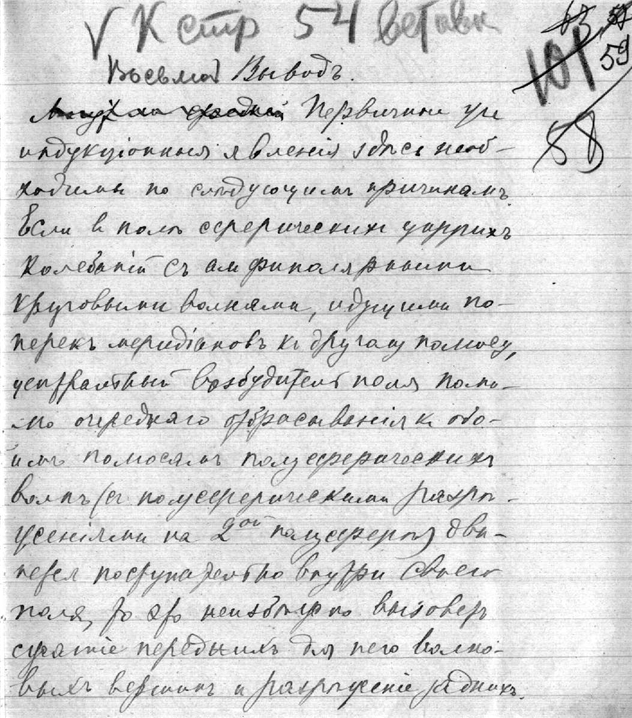 К стр 54 вставка
43 57
101 59
58
Восьмой Выводъ.
Первичныя
индукціонныя явленія здѣсь необ-
ходимы по слѣдующимъ причинамъ.
Если в полѣ сферическихъ упругихъ
колебаній съ амфиполярными
круговыми волнами, идущими по-
перекъ меридіановъ къ другому полюсу,
центральный возбудитель поля поми-
мо очереднаго отбрасыванія къ обо-
имъ полюсамъ полусферическихъ
волнъ (съ полусферическими разры-
женіями на 2ой полусферѣ) дви-
жется поступательно внутри своего
поля, то это неизбѣжно вызоветъ
сжатіе переднихъ для него волно-
выхъ вершинъ и разрѣженіе заднихъ.